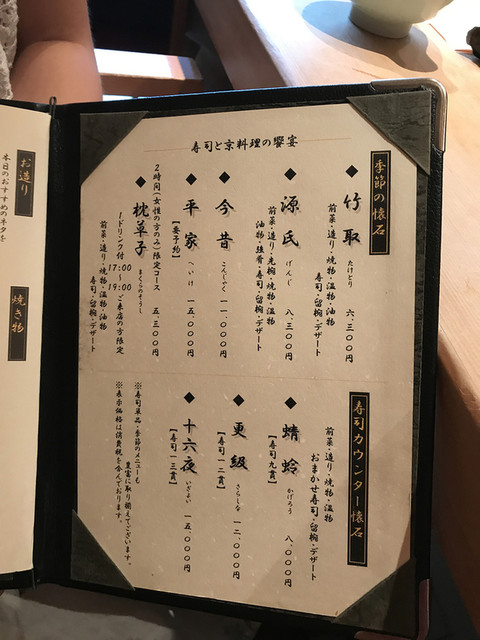 寿司と京料理の饗宴
季節の懐石
◆竹取 たけとり 六、三〇〇円
前菜・造り・焼物・温物・油物
寿司・留椀・デザート
◆源氏 げんじ 八、三〇〇円
前菜・造り・先椀・焼物・温物
油物・強肴・寿司・留椀・デザート
◆今昔 こんじゃく 一一、〇〇〇円
◆平家 へいけ 一五、〇〇〇円
【要予約】
2時間(女性の方のみ)限定コース
◆枕草子 まくらのそうし 五、三〇〇円
1ドリンク付 17:00〜19:00ご来店の方限定
前菜・造り・焼物・温物・油物
寿司・留椀・デザート
寿司カウンター懐石
前菜・造り・焼物・温物
おまかせ寿司・留椀・デザート
◆蜻蛉 かげろう 八、〇〇〇円
【寿司九貫】
◆更級 さらしな 一二、〇〇〇円
【寿司一二貫】
◆十六夜 いざよい 一五、〇〇〇円
【寿司一三貫】
※寿司単品・季節のメニューも
豊富に取り揃えてございます。
※表示価格は消費税を含んでおります。
お造り
本日のおすすめのネタを
焼き物